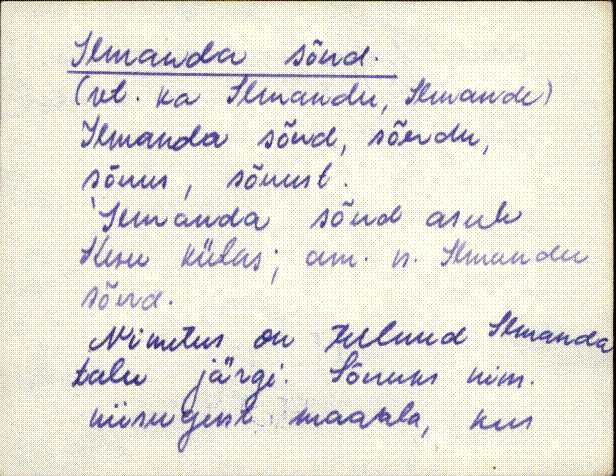 Ilmanda sõnd.
(vt. ka Ilmandu, Ilmande)
Ilmanda sõnd, sõndu,
sõnus, sõnust.
Ilmanda sõnd asub
külas; am. n. Ilmandu
sõnd.
Nimetus on tulnud Ilmanda
talu järgi. Sõnuks nim.
niisugust maaala, kus